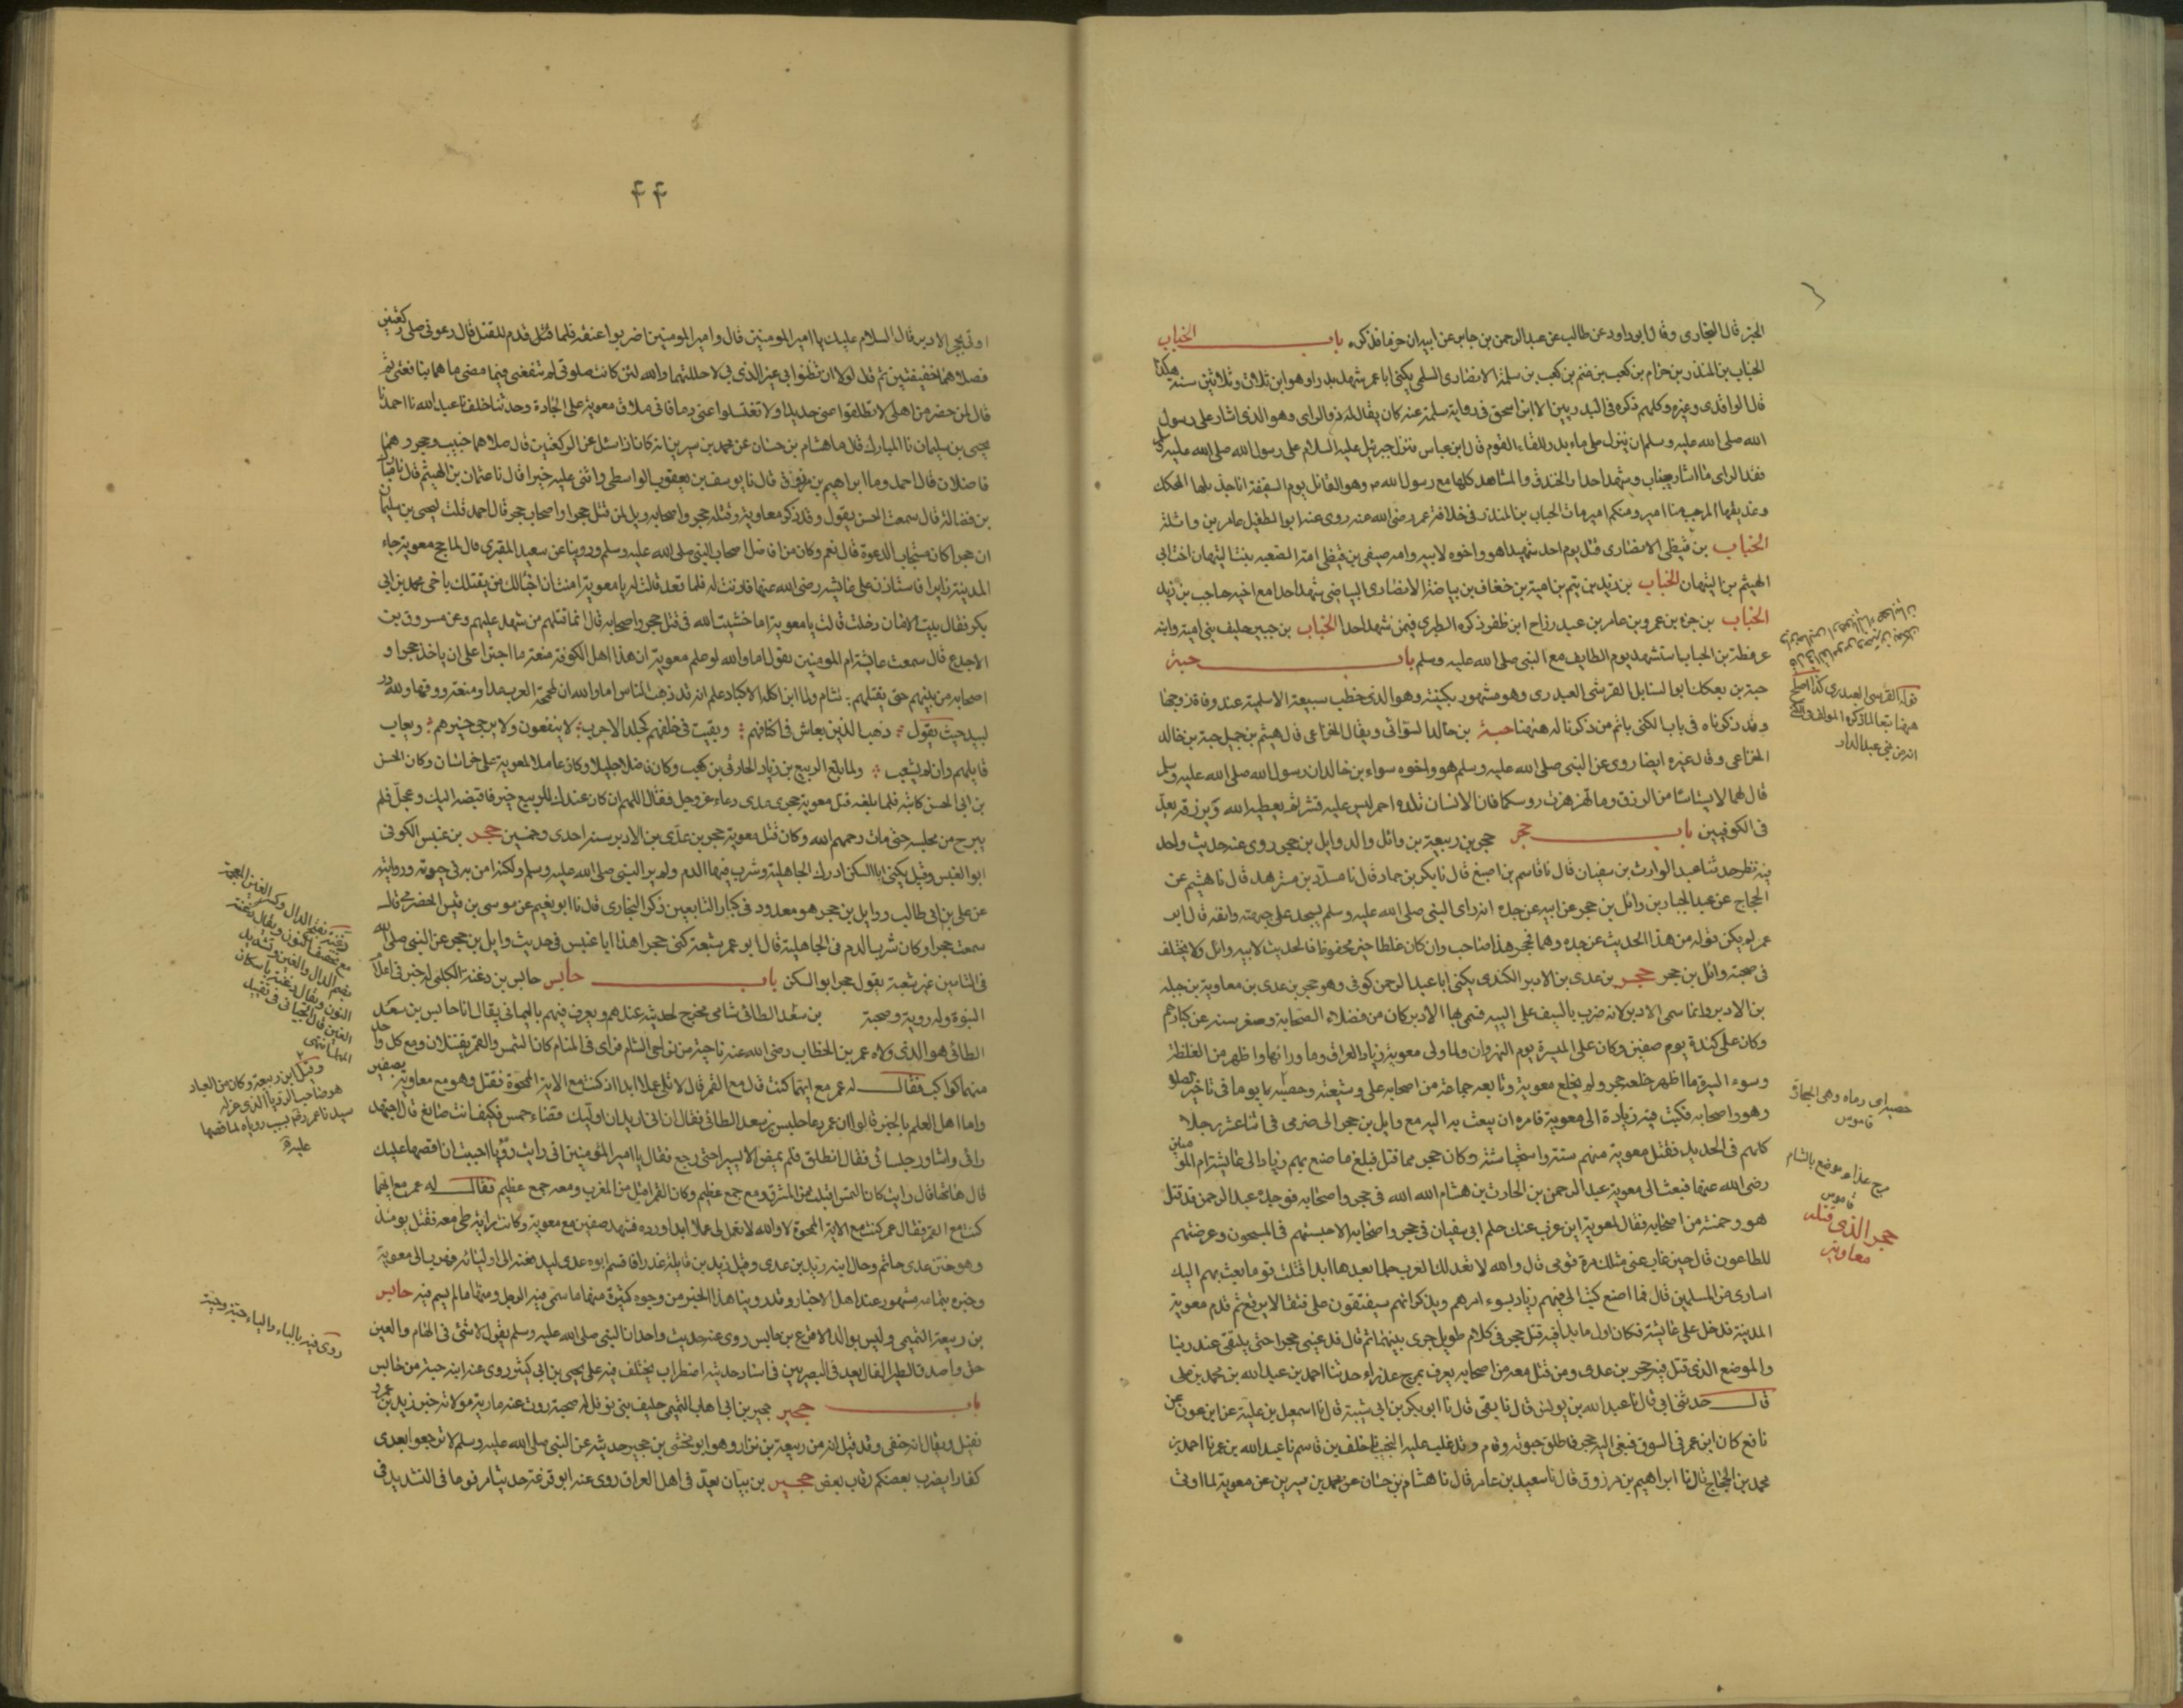 الخبر قال البخاري وقال ابو داود عن طالب عن عبد الرحمن بن جابر عن ابيه ان حزما فذكره باب الحباب
الحباب بن المنذر بن حزام بن كعب بن غنم بن كعب بن سلمة الانصاري السلمي يكنى ابا عمر شهد بدرا وهو ابن ثلاث وثلاثين سنة هكذا
قال الواقدي وغيره وكلهم ذكره في البدريين الا ابن اسحق في رواية سلمة عنه كان يقال له ذو الراي وهو الذي اشار على رسول
الله صلى الله عليه وسلم ان ينزل على ماء بدر للقاء القوم قال ابن عباس فنزل جبرئيل عليه السلام على رسول الله صلى الله عليه وسلم
فقال الراي ما اشار به حباب وشهد احدا والخندق والمشاهد كلها مع رسول الله ص وهو القائل يوم السقيفة انا جذيلها المحكك
وعذيقها المرجب منا امير ومنكم امير مات الحباب بن المنذر في خلافة عمر رضي الله عنه روى عنه ابو الطفيل عامر بن واثلة
الحباب بن قيظي الانصاري قتل يوم احد شهيدا هو واخوه لابيه وامه صيفي بن قيظي امه الصعبه بنت التيهان اخت ابي
الهيثم بن التيهان الحباب بن زيد بن تيم بن امية بن خفاف بن بياضة الانصاري البياضي شهد احدا مع اخيه حاجب بن زيد
الحباب بن جزء بن عمرو بن عامر بن عبد رزاح ابن ظفر ذكره الطبري فيمن شهد احدا الحباب بن جبير حليف بني امية وابنه
عرفطة بن الحباب استشهد يوم الطايف مع النبي صلى الله عليه وسلم باب حبة
حبة بن بعكك ابو السنابل القرشي العبدري وهو مشهور بكنيته وهو الذي خطب سبيعة الاسلمية عند وفاة زوجها
وقد ذكرناه في باب الكنى باتم من ذكرنا له ههنا حبة بن خالد السوائي ويقال الخزاعي قال هيثم بن جميل حبة بن خالد
الخزاعي وقال غيره ايضا روى عن النبي صلى الله عليه وسلم هو واخوه سواء بن خالد ان رسول الله صلى الله عليه وسلم
قال لهما لا ييئسا من الرزق وما تهزهزت روسكما فان الانسان تلده احمر ليس عليه قشر ثم يعطيه الله ويرزقه يعد
في الكوفيين باب حجر حجر بن ربيعة بن وائل والد وايل بن حجر روى عنه حديث واحد
فيه نظر حدثنا عبد الوارث بن سفيان قال نا قاسم بن اصبغ قال نا بكر بن حماد قال نا مسدد بن مسرهد قال نا هشيم عن
الحجاج عن عبد الجبار بن وائل بن حجر عن ابيه عن جده انه راى النبي صلى الله عليه وسلم يسجد على جبهته وانفه قال ابو
عمر لم يكن قوله من هذا الحديث عن جده وهما فحجر هذا صاحب وان كان غلطا غير محفوظ فالحديث لابيه وائل ولا يختلف
في صحبة وائل بن حجر حجر بن عدي بن الادبر الكندي يكنى ابا عبد الرحمن كوفي وهو حجر بن عدي بن معاوية بن جبله
بن الادبر وانما سمي الادبر لانه ضرب بالسيف على اليته فسمي بها الادبر كان من فضلاء الصحابة وصغر سنه عن كبارهم
وكان على كندة يوم صفين وكان على الميسرة يوم النهروان ولما ولى معوية زياد العراق وما وراءها واظهر من الغلظة
وسوء السيرة ما اظهر خلعه حجر ولم يخلع معوية وتابعه جماعة من اصحاب علي وشيعته وحصبه يا يوما في تاخير الصلو
هو واصحابه فكتب فيه زياد الى معوية فامره ان يبعث به اليه مع وايل بن حجر الحضرمي في اثنا عشر رجلا
كلهم في الحديد فقتل معوية منهم ستة واستحيا ستة وكان حجر ممن قتل فبلغ ما صنع بهم زياد الى عائشة ام المومنين
رضي الله عنها فبعثت الى معوية عبد الرحمن بن الحارث بن هشام الله الله في حجر واصحابه فوجده عبد الرحمن قد قتل
هو وخمسة من اصحابه فقال لمعوية اين عزب عنك حلم ابي سفيان في حجر واصحابه الا حبستهم في السجون وعرضتهم
للطاعون قال حين غاب عني مثلك من قومي قال والله لا تعد لك العرب حلما بعدها ابدا قتلت قوما بعث بهم اليك
اسارى من المسلمين قال فما اصنع كتب الي فيهم زياد بسوء امرهم ويذكر انهم سيفتقون علي فتقا لا يرقع ثم قدم معوية
المدينة فدخل على عائشة فكان اول ما بدأته قتل حجر في كلام طويل جرى بينهما ثم قال فدعيني وحجرا حتى نلتقي عند ربنا
والموضع الذي قتل فيه حجر بن عدي ومن قتل معه من اصحابه يعرف بمرج عذراء حدثنا احمد بن عبد الله بن محمد بن علي
قال حدثني ابي قال نا عبد الله بن يونس قال نا بقي قال نا ابو بكر بن ابي شيبة قال نا اسمعيل بن علية عن ابن عون عن
نافع كان ابن عمر في السوق فنعي اليه حجر فاطلق حبوته وقام وقد غلب عليه النحيب نا خلف بن قاسم نا عبد الله بن عمر نا احمد بن
محمد بن الحجاج قال نا ابراهيم بن مرزوق قال نا سعيد بن عامر قال نا هشام بن حسان عن محمد بن سيرين عن معوية لما اوتي
قوله القرشي العبدري كذا اصلح
ههنا تبعا لما ذكره المولف في الكنى
انه من بني عبد الدار
حصبه اي رماه وهي الحجارة
قاموس
مرج عذراء موضع بالشام
قاموس
حجر الذي قتله
معاوية
۴۴
اوتي بحجر الادبر قال السلام عليك يا امير المومنين قال وامير المومنين انا ضربوا عنقه فلما قدم للقتل قال دعوني اصلي ركعتين
فصلاهما خفيفتين ثم قال لولا ان تظنوا بي غير الذي بي لاطلتهما والله لئن كانت صلوتي لم تنفعني فيما مضى ما هما بنافعتي ثم
قال لمن حضر من اهله لا تطلقوا عني حديدا ولا تغسلوا عني دما فاني ملاق معوية على الجادة وحدثنا خلف نا عبد الله نا احمد نا
يحيى بن سليمان نا المبارك قال نا هشام بن حسان عن محمد بن سيرين انه كان اذا سئل عن الركعتين قال صلاهما خبيب وحجر وهما
فاضلان قال احمد ونا ابراهيم بن مرزوق قال نا يوسف بن يعقوب الواسطي واثنى عليه خيرا قال نا عثمان بن الهيثم قال نا مبارك
بن فضالة قال سمعت الحسن يقول وقد ذكر معاوية وقتله حجر واصحابه ويل لمن قتل حجرا واصحاب حجر قال احمد قلت ليحيى بن سليمان
ان حجرا كان مستجاب الدعوة قال نعم وكان من افاضل اصحاب النبي صلى الله عليه وسلم وروينا عن سعيد المقبري قال لما حج معوية جاء
المدينة زايرا فاستاذن على عائشه رضي الله عنها فاذنت له فلما قعد قالت له يا معوية امنت ان اخبا لك من يقتلك باخي محمد بن ابي
بكر فقال بيت الامان دخلت قالت يا معوية اما خشيت الله في قتل حجر واصحابه قال انما قتلهم من شهد عليهم وعن مسروق بن
الاجدع قال سمعت عائشة ام المومنين تقول اما والله لو علم معوية ان هذا اهل الكوفة منعة ما اجترا على ان ياخذ حجرا و
اصحابه من بينهم حتى يقتلهم بشام ولما ابن اكلة الاكباد علم انه قد ذهب الناس اما والله ان لجمجمة العرب عدا ومنعة وفقها ولله در
لبيد حيث يقول ذهب الذين يعاش في اكنافهم وبقيت في خلف كجلد الاجرب لا ينفعون ولا يرجى خيرهم ويعاب
قايلهم وان لم يشغب ولما بلغ الربيع بن زياد الحارثي بن كعب وكان فاضلا جليلا وكان عاملا لمعوية على خراسان وكان الحسن
بن ابي الحسن كاتبه فلما بلغه قتل معوية حجر بن عدي دعا عز وجل فقال اللهم ان كان عندك للربيع خير فاقبضه اليك وعجل فلم
يبرح من مجلسه حتى مات رحمهم الله وكان قتل معوية حجر بن عدي بن الادبر سنة احدى وخمسين حجر بن عنبس الكوفي
ابو العنبس وقيل يكنى ابا السكن ادرك الجاهلية وشرب فيها الدم ولم ير النبي صلى الله عليه وسلم ولكنه امن به في حيوته وروايته
عن علي بن ابي طالب ووايل بن حجر هو معدود في كبار التابعين ذكر البخاري قال نا ابو نعيم عن موسى بن قيس الحضرمي قال
سمعت حجرا وكان شرب الدم في الجاهلية قال ابو عمر شعبة كنى حجرا هذا ابا عنبس في حديث وايل بن حجر عن النبي صلى الله
في التامين غير شعبة يقول حجر ابو السكن باب حابس حابس بن دغنة الكلبي له خبر في اعلام
النبوة وله روية وصحبة بن سعد الطائي شامي مخرج لحديثه عندهم ويعرف فيهم باليماني يقال انا حابس بن سعد
الطائي هو الذي ولاه عمر بن الخطاب رضي الله عنه ناحية من نواحي الشام فراى في المنام كان الشمس والقمر يقتتلان ومع كل واحد
منهما كواكب فقال له عمر مع ايهما كنت قال مع القمر قال لا تلي عملا ابدا اذ كنت مع الاية الممحوة فقتل وهو مع معاوية بصفين
واما اهل العلم بالخبر قالوا ان عمر دعا حابس بن سعد الطائي فقال ان اني اريد ان اوليك قضاء حمص فكيف انت صانع قال اجتهد
رائي واشاور جلسائي فقال انطلق فلم يمض الا يسيرا حتى رجع فقال يا امير المؤمنين اني رايت رؤيا احببت ان اقصها عليك
قال هاتها قال رايت كان الشمس اقبلت من المشرق ومعها جمع عظيم وكان القمر اقبل من المغرب ومعه جمع عظيم فقال له عمر مع ايهما
كنت مع القمر فقال عمر كنت مع الاية الممحوة لا والله لا تعمل لي عملا ابدا ورده فشهد صفين مع معوية وكانت راية طي معه فقتل يومئذ
وهو ختن عدي حاتم وخال ابنه زيد بن عدي وقيل زيد بن قاتله غدرا فاقسم ابوه عدي ليدفعنه الى اوليائه فهرب الى معوية
وخبره بتمامه مشهور عند اهل الاخبار وقد روينا هذا الخبر من وجوه كثيرة منها ما سمي فيه الرجل ومنها ما لم يسم فيه حابس
بن ربيعة التميمي وليس بوالد الاقرع بن حابس روى عنه حديث واحد ان النبي صلى الله عليه وسلم يقول لا شئ في الهام والعين
حق واصدق الطير الفال يعد في البصريين في اسناد حديثه اضطراب يختلف فيه على يحيى بن ابي كثير روى عنه ابنه حية من حابس
باب حجير حجير بن ابي اهاب التميمي حليف بني نوفل له صحبة روت عنه مارية مولاته خبر زيد بن عمرو
نفيل ويقال انه حنفي وقد قيل انه من ربيعة بن نزار وهو ابو مخشي بن حجير حديثه عن النبي صلى الله عليه وسلم لا ترجعوا بعدي
كفارا يضرب بعضكم رقاب بعض حجير بن بيان يعد في اهل العراق روى عنه ابو قزعة حديثا مرفوعا في التشديد في
دغنة بفتح الدال وكسر الغين المعجمة
مع تخفيف النون ويقال دغنة
بضم الدال والغين وتشديد
النون ويقال دغنة باسكان
الغين قال الجياني في تقييد
المهمل انتهى
وقيل ابن ربيعة وكان من العباد
هو صاحب الرؤيا الذي عزله
سيدنا عمر رضه بسبب روياه لما قصها
عليه
روي فيه بالباء والياء حبة وحية